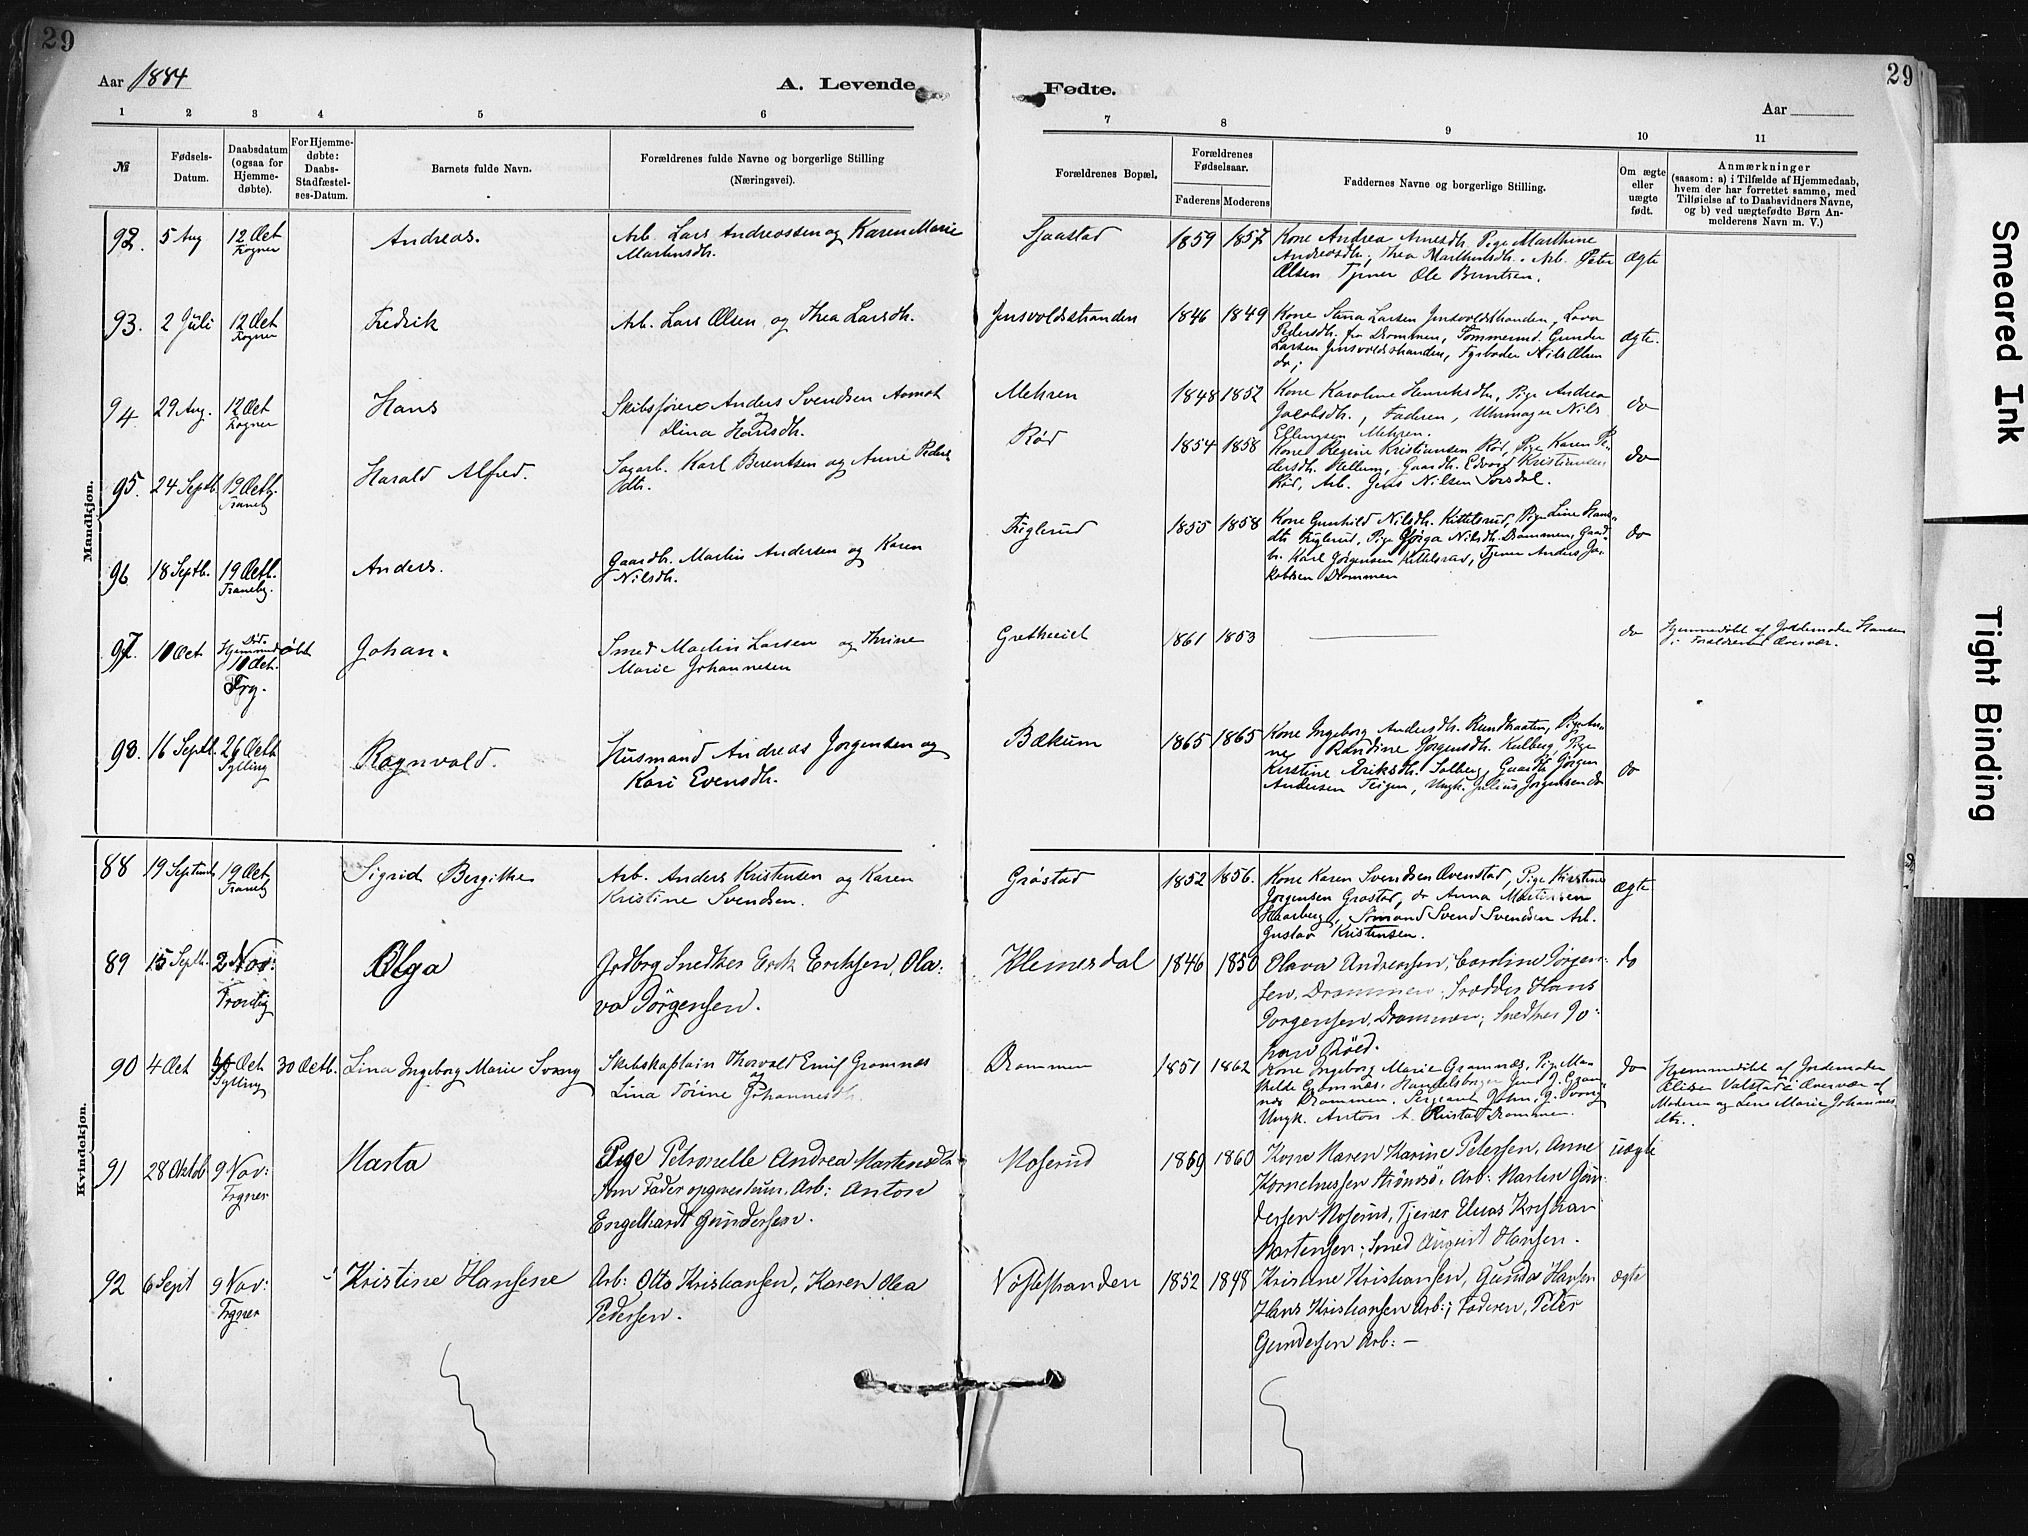 29
29
Aar 1884
A. Levende Fødte.
Aar
1 2 3 4 5 6 7 8 9 10 11
№
Fødsels-Datum.
Daabsdatum (ogsaa for Hjemmedøbte).
For Hjemmedøbte: Daabs-Stadfæstelses-Datum.
Barnets fulde Navn.
Forældrenes fulde Navne og borgerlige Stilling
(Næringsvei).
Forældrenes Bopæl.
Forældrenes Fødselsaar.
Faderens Moderens
Faddernes Navne og borgerlige Stilling.
Om ægte eller uægte født.
Anmærkninger
(saasom: a) i Tilfælde af Hjemmedaab,
hvem der har forrettet samme, med
Tilføielse af to Daabsvidners Navne,
og b) ved uægtefødte Børn Anmelderens Navn m. V.)
Mandkjøn.
92. 5 Aug 12 Oct Andreas. Arb. Lars Andreassen og Karen Marie
Martinsdtr.
Sjaastad 1859 1857 Kone Andrea Arnesdtr, Pige Marthine
Andreasdtr, Thea Marthinsdtr. Arb. Peter
Olsen Tjener Ole Berntsen.
ægte
93. 2 Juli 12 Oct Fredrik Arb. Lars Olsen og Thea Larsdtr.
1846 1849 Kone Stina Larsen
Pedersdtr. fra Drammen, Gunder
Larsen Nils Olsen
do;
ægte.
94 29 Aug. 12 Oct Hans Skibsfører Anders Svendsen Aamot
og
Dina Hansdtr.
Mehren 1848 1852 Kone Karoline Henriksdtr, Pige Andrea
Jacobsdtr., Faderen, Uhrmager Nils
Ellingsen Mehren.
do
95. 24 Septb. 19 Octb. Harald Alfred. Sagarb. Karl Berentsen og Anne Peders
dtr.
Rød 1854 1858 Kone Regine Kristiansen Rød, Pige Karen Pe-
dersdtr. Gaardb. Edvard Kristiansen
Rød, Arb. Jens Nilsen
do
96 18 Septb. 19 Octb. Anders. Gaardb. Martin Andersen og Karen
Nilsdtr.
1855 1858 Kone Gunhild Nilsdtr. Kittelsrud, Pige Line Hans-
dtr Pige Nilsdtr. Drammen, Gaard-
b. Karl Jørgensen Kittelsrud, Tjener Anders Ja-
kobsen Drammen
do
97. 10 Oct Hjemmedøbt
10 Oct.
Johan. Smed Martin Larsen og Thrine
Marie Johannesen
1861 1853 do Hjemmedøbt af Jordemoder Hansen
i Forældrenes Overvær.
98. 16 Septb. 26 Octb
Sylling
Ragnvald. Husmand Andreas Jørgensen og
Kari Evensdtr.
Bækum 1865 1865 Kone Ingeborg Andersdtr. Pige An-
ne Randine Jørgensdtr. Pige
Kirstine Eriksdtr. Solberg, Gaardb. Jørgen
Andersen Teigen, Ungk. Julius Jørgensen do
do
Kvindekjøn.
88 19 Septemb 19 Oct Sigrid Bergithe Arb. Anders Kristensen og Karen
Kristine Svendsen.
Grøstad 1852 1856. Kone Karen Svendsen Ovenstad, Pige Kirstine
Jørgensen Grøstad, do Anna Martinsen
Haarberg, Sømand Svend Svendsen Arb.
Gustav Kristensen.
ægte
89 15 Septb. 2 Nov: Olga Jordbrg Snedker Erik Eriksen, Ola:
va Jörgensen.
Kleinesdal 1846 1850 Olava Andreassen; Caroline Jörgen-
sen, Drammen; Hans
Jorgensen, Drammen; Snedker Jo:
han
do
90 4 Oct Oct
Sylling
30 Octb. Lina Ingeborg Marie Svang Skibskaptain Thorvald Emil Gramnæs
og
Lina Johannesdtr.
Drammen 1851 1862 Kone Ingeborg Marie Gramnæs, Pige Ma-
thilde Gramnæs, Handelsborger
Drammen. Sergeant John
Ungk. Anton A. Drammen.
do Hjemmedöbt af Jordemoder
Valstad i Overvær af
Moderen og Lene Marie Johannes
dtr.
91 28 Oktob 9 Nov: Marta Pige Petronelle Andrea Martensdtr
som Fader opgivestum. Arb: Anton
Engelhardt Gundersen.
Moserud 1869 1860 Kone Maren Karine Petersen, Anne
Korneliussen Strömsö, Arb: Marten Gun-
dersen Moserud, Tjener Elias Kristian
Martensen; Smed August Hansen.
uægte
92 6 Sept 9 Nov: Kristine Hansene Arb: Otto Kristiansen, Karen Olea
Pedersen.
1852 1848 Kristine Kristiansen, Hansen
Hans Kristiansen Arb:; Faderen, Peter
Gundersen Arb: —
ægte
Smeared Ink
Tight Binding